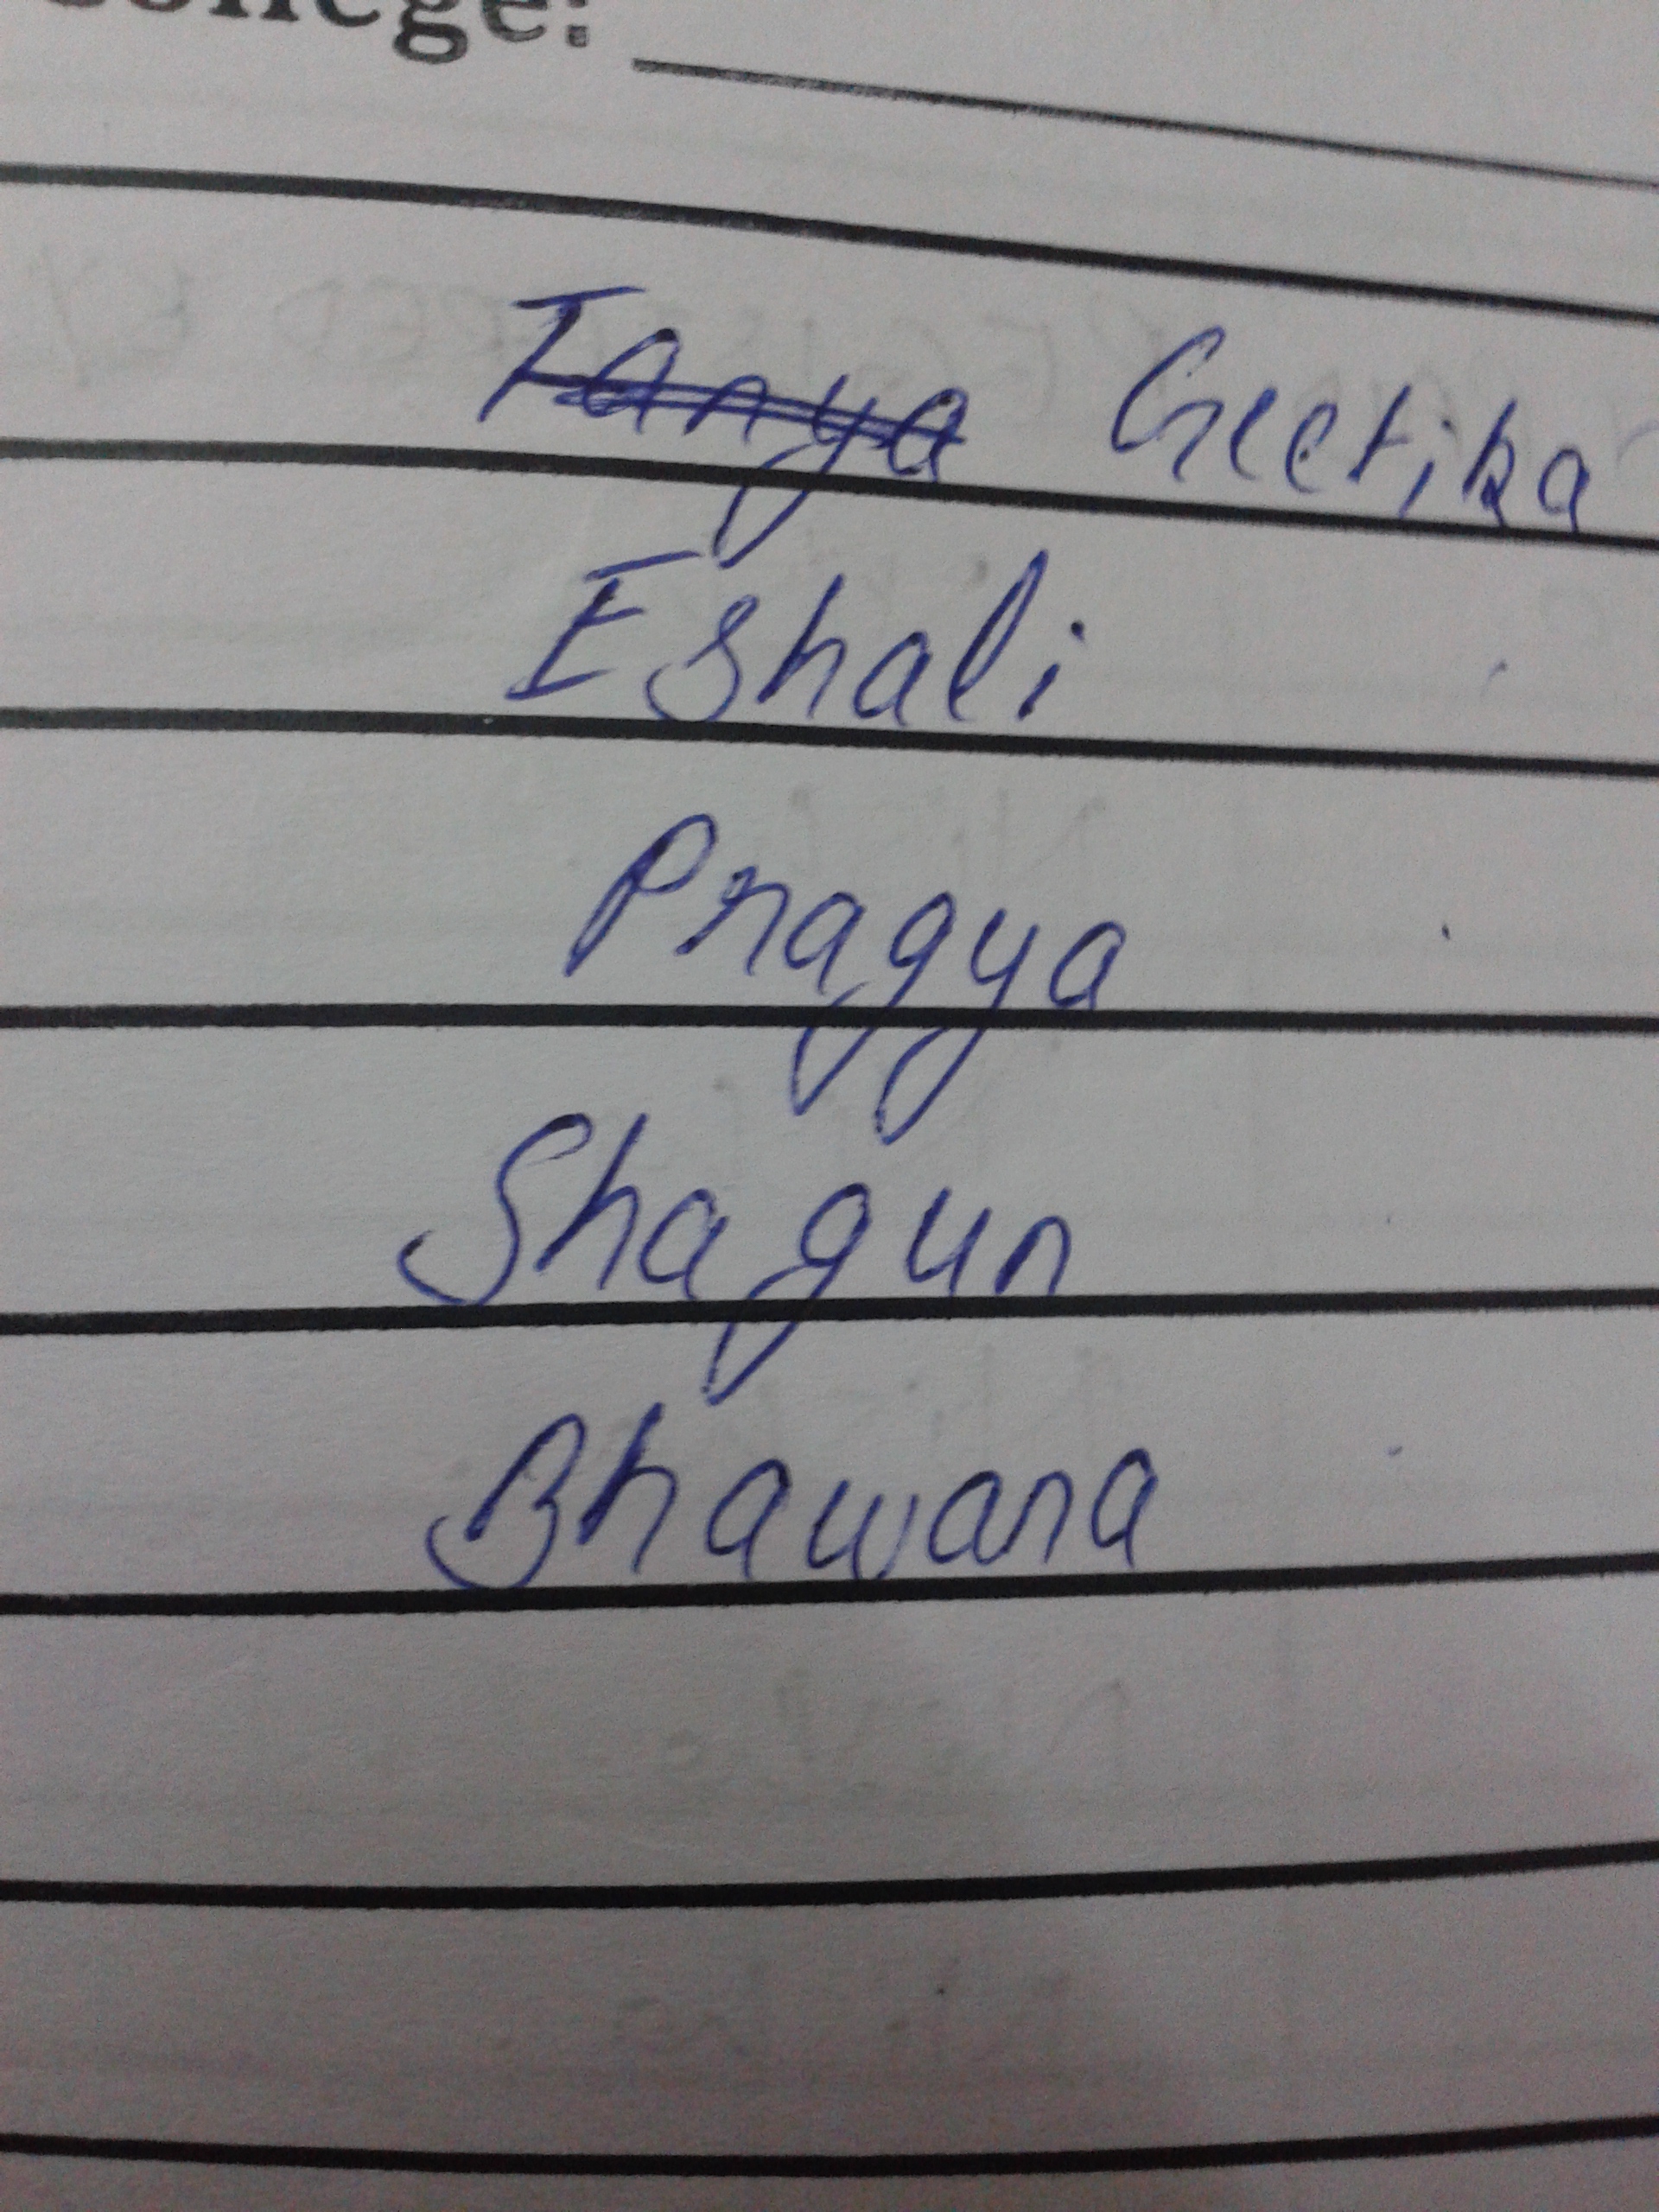 College:
Tanya Geetika
Eshali
Pragya
Shagun
Bhawana